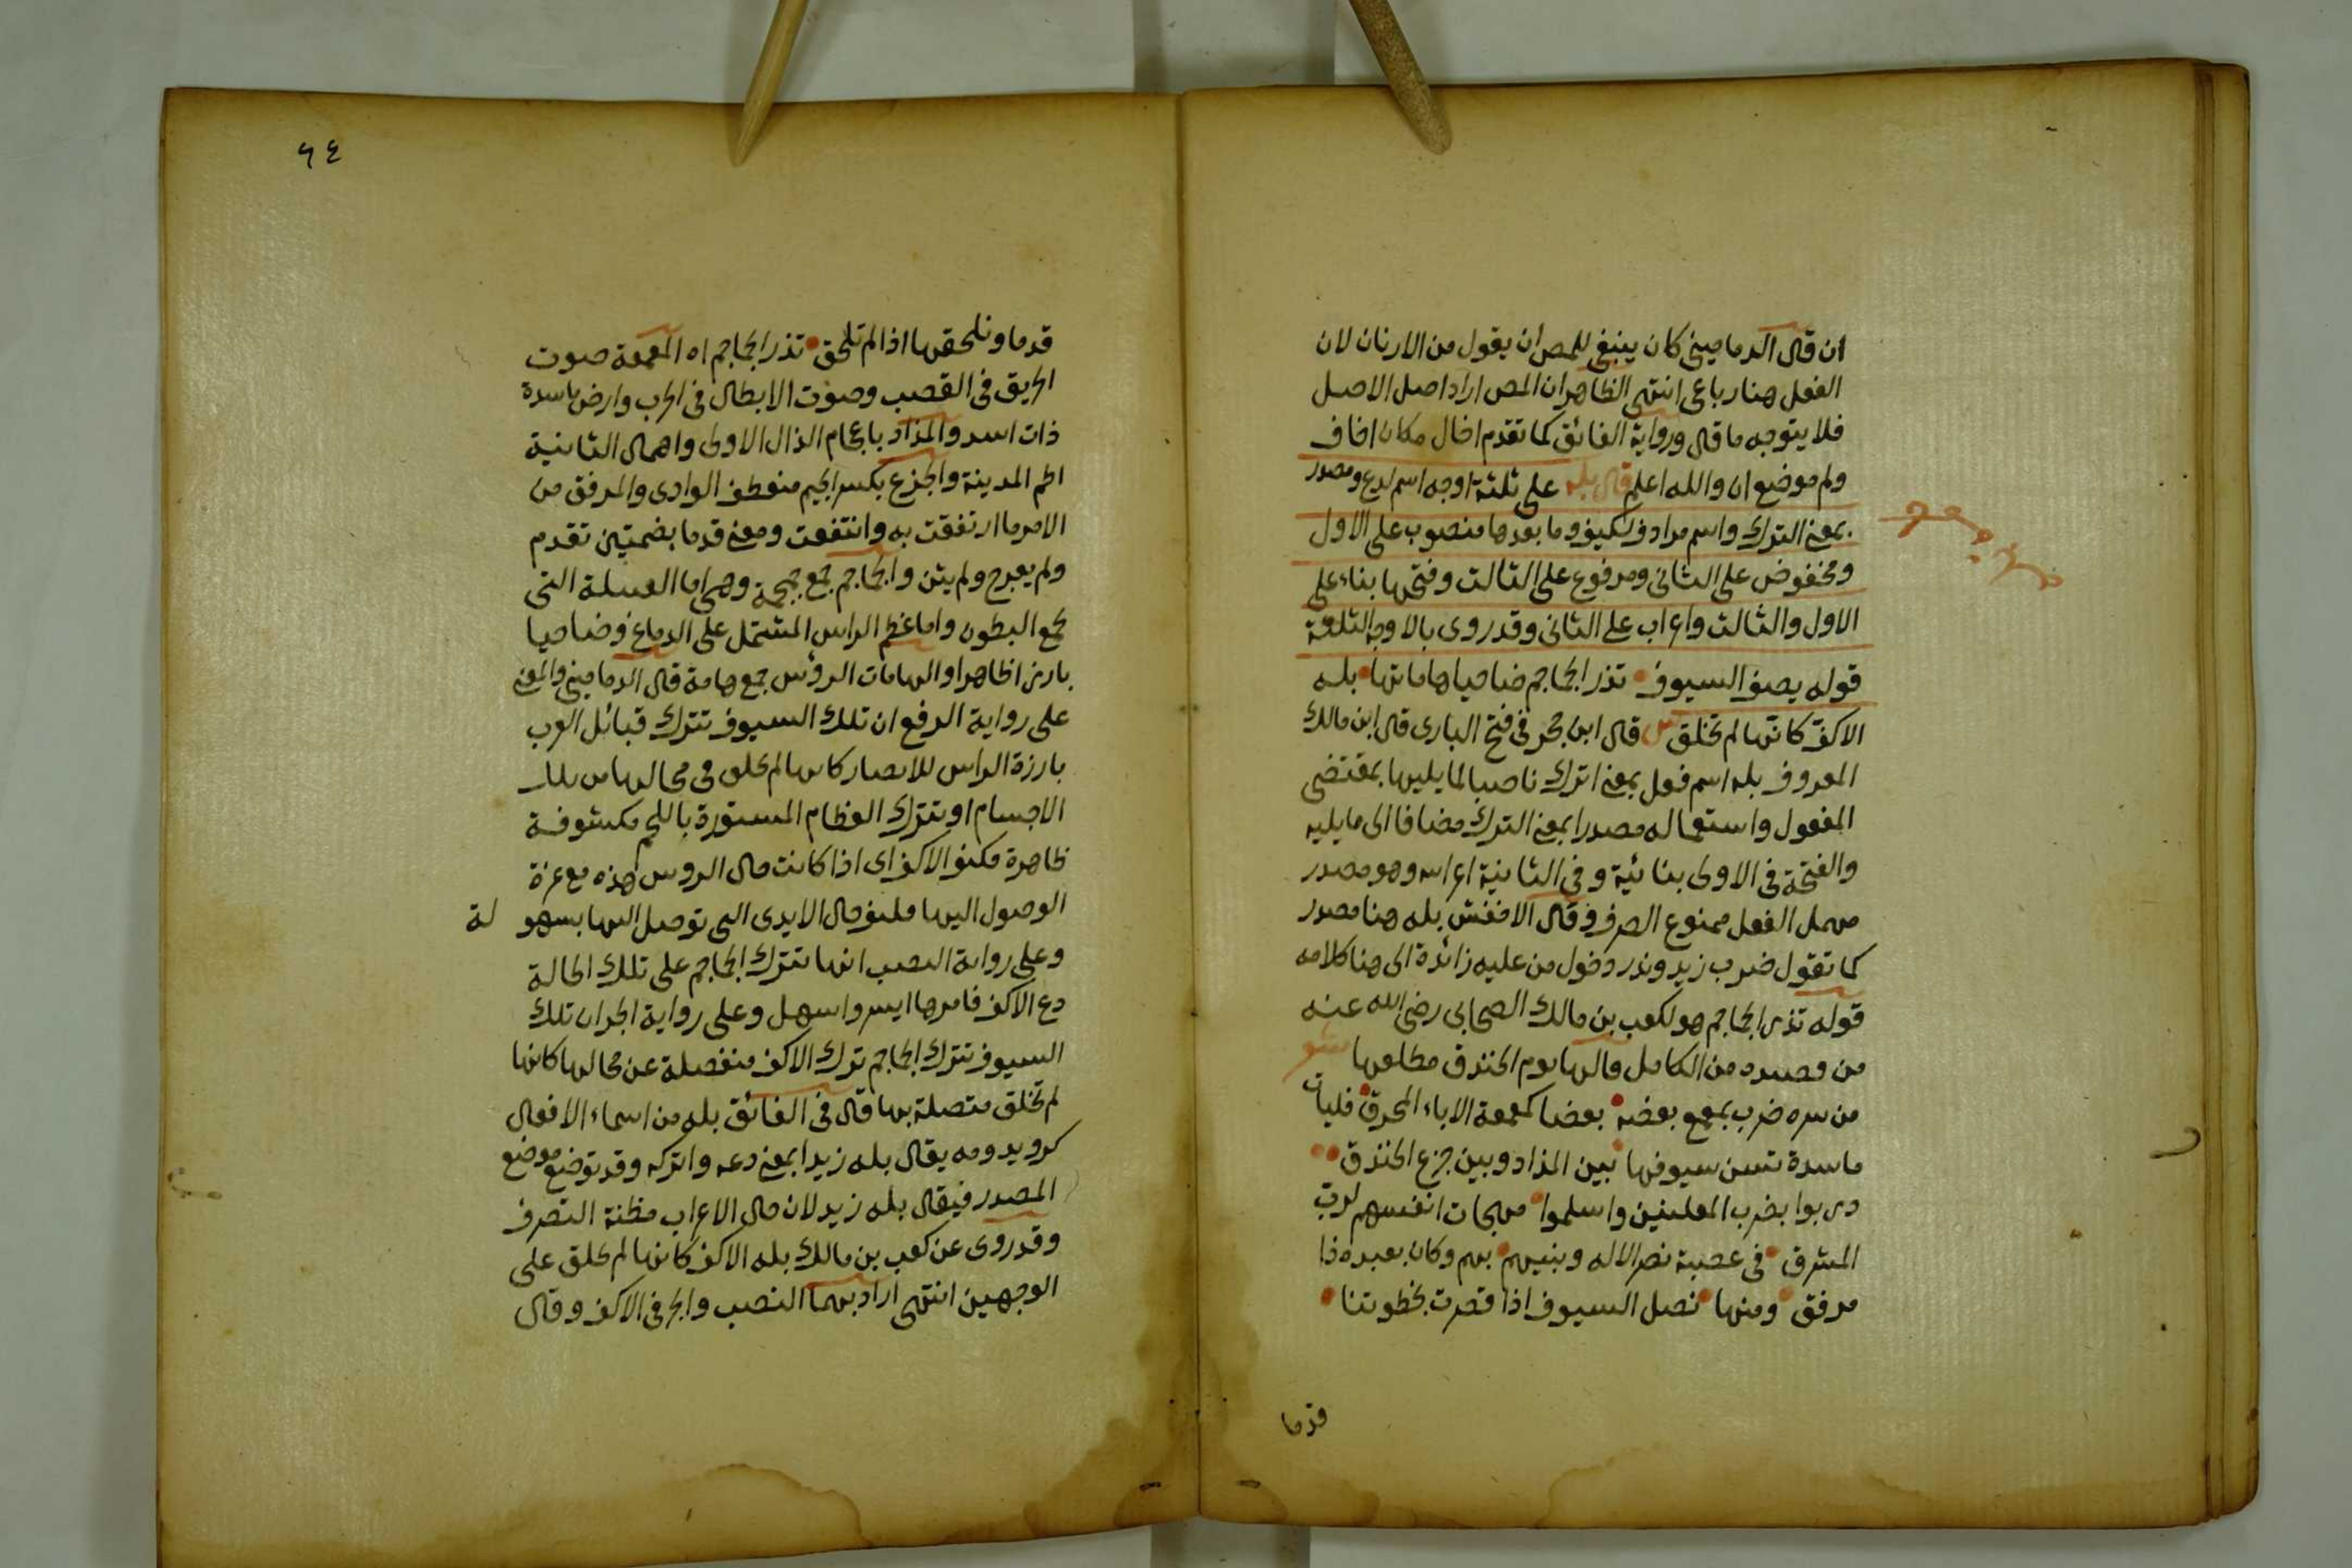 ان قال الدماميني كان ينبغي للمص ان يقول من الارنان لان
الفعل هنا رباعي انتهى الظاهر ان المص اراد اصل الاصل
فلا يتوجه ما قال ورواية الفائق كما تقدم اخال مكان اخاف
ولم موضع ان والله اعلم قال بله على ثلثة اوجه اسم لدع ومصدر
بمعنى الترك واسم مرادف لكيف وما بعدها منصوب على الاول
ومخفوض على الثاني ومرفوع على الثالث وفتحها بناء على
الاول والثالث واعراب على الثاني وقد روى بالاوجه الثلثة
قوله يصف السيوف تذر الجماجم ضاحيا هاماتها بله
الاكف كانها لم تخلق س قال ابن حجر في فتح الباري قال ابن مالك
المعروف بله اسم فعل بمعنى اترك ناصبا لما يليها بمقتضى
المفعول واستعماله مصدرا بمعنى الترك مضافا الى ما يليه
والفتحة في الاولى بنائية وفي الثانية اعرابية وهو مصدر
مهمل الفعل ممنوع الصرف وقال الاخفش بله هنا مصدر
كما تقول ضرب زيد وندر دخول من عليه زائدة الى هنا كلامه
قوله تذر الجماجم هو لكعب بن مالك الصحابي رضي الله عنه
من قصيدة من الكامل قالها يوم الخندق مطلعها شعر
من سره ضرب يمعمع بعضه بعضا كمعمعة الاباء المحرق فليأت
ماسدة تسن سيوفها بين المذاد وبين جزع الخندق
دربوا بضرب المعلمين واسلموا مهجات انفسهم لرب
المشرق في عصبة نصر الاله وبنيهم بهم وكان بعبده ذا
مرفق ومنها نصل السيوف اذا قصرت بخطوتنا
قدما
٦٤
قدما ونلحقها اذا لم تلحق تذر الجماجم اه المعمعة صوت
الحريق في القصب وصوت الابطال في الحرب وارض ماسدة
ذات اسد والمذاد باعجام الذال الاولى واهمال الثانية
اطم المدينة والجزع بكسر الجيم منعطف الوادى والمرفق من
الامر ما ارتفقت به وانتفعت ومعنى قدما بضمتين تقدم
ولم يعرج ولم يثن والجماجم جمع جمجمة وهي اما القبيلة التي
تجمع البطون واما عظم الراس المشتمل على الدماغ وضاحيا
بارزا ظاهرا والهامات الرؤس جمع هامة قال الدماميني والمعنى
على رواية الرفع ان تلك السيوف تترك قبائل العرب
بارزة الراس للابصار كانها لم تخلق في محالها من تلك
الاجسام او تترك العظام المستورة باللحم مكشوفة
ظاهرة فكيف الاكف اى اذا كانت حال الروس هذه مع عزة
الوصول اليها فكيف حال الايدى التي توصل اليها بسهو لة
وعلى رواية النصب انها تترك الجماجم على تلك الحالة
دع الاكف فامرها ايسر واسهل وعلى رواية الجر ان تلك
السيوف تترك الجماجم ترك الاكف منفصلة عن محالها كانها
لم تخلق متصلة بها قال في الفائق بله من اسماء الافعال
كرويد ومه يقال بله زيدا بمعنى دعه واتركه وقد توضع موضع
المصدر فيقال بله زيد لان حال الاعراب مظنة التصرف
وقد روى عن كعب بن مالك بله الاكف كانها لم تخلق على
الوجهين انتهى اراد بهما النصب والجر في الاكف وقال